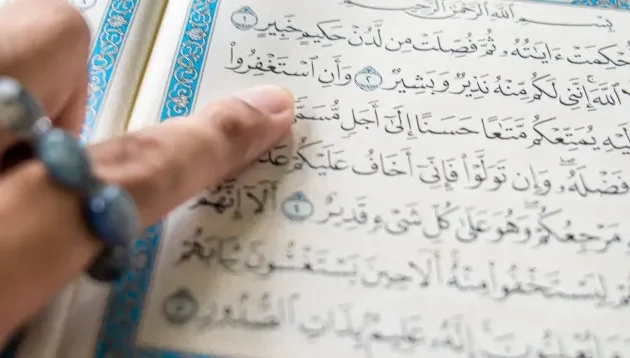 بِسْمِ ٱللَّهِ ٱلرَّحْمَٰنِ ٱلرَّحِيمِ
أُحْكِمَتْ ءَايَٰتُهُۥ ثُمَّ فُصِّلَتْ مِن لَّدُنْ حَكِيمٍ خَبِيرٍ ١
ٱللَّهَ إِنَّنِى لَكُم مِّنْهُ نَذِيرٌ وَبَشِيرٌ ٢ وَأَنِ ٱسْتَغْفِرُوا۟
إِلَيْهِ يُمَتِّعْكُم مَّتَٰعًا حَسَنًا إِلَىٰٓ أَجَلٍ مُّسَمًّى
فَضْلَهُۥ وَإِن تَوَلَّوْا۟ فَإِنِّىٓ أَخَافُ عَلَيْكُمْ
مَرْجِعُكُمْ وَهُوَ عَلَىٰ كُلِّ شَىْءٍ قَدِيرٌ ٤ أَلَآ إِنَّهُمْ
لِيَسْتَخْفُوا۟ مِنْهُ أَلَا حِينَ يَسْتَغْشُونَ ثِيَابَهُمْ
إِنَّهُۥ عَلِيمٌۢ بِذَاتِ ٱلصُّدُورِ